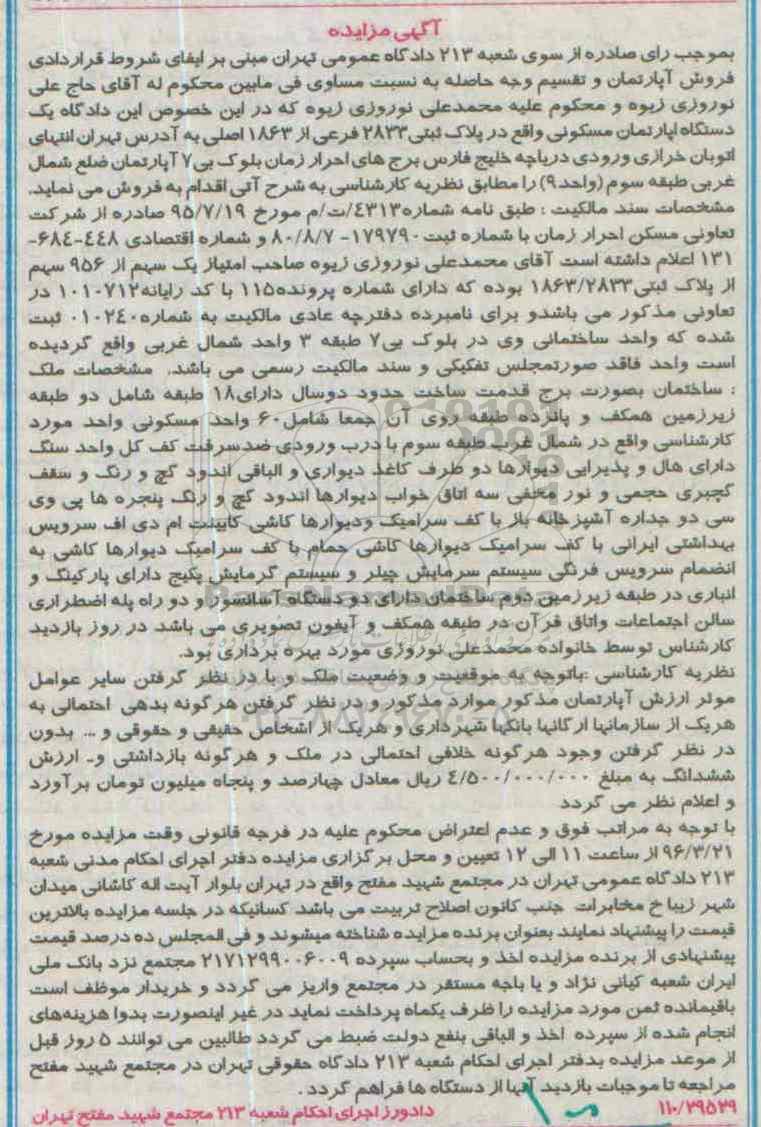 آگهی مزایده
بموجب رای صادره از سوی شعبه ۲۱۳ دادگاه عمومی تهران مبنی بر ایفای شروط قراردادی
فروش آپارتمان و تقسیم وجه حاصله به نسبت مساوی فی مابین محکوم له آقای حاج علی
نوروزی زیوه و محکوم علیه محمدعلی نوروزی زیوه که در این خصوص این دادگاه یک
دستگاه اپارتمان مسکونی واقع در پلاک ثبتی۲۸۳۳ فرعی از ۱۸۶۳ اصلی به آدرس تهران انتهای
اتوبان خرازی ورودی دریاچه خلیج فارس برج های احرار زمان بلوک بی۷ آپارتمان ضلع شمال
غربی طبقه سوم (واحد۹) را مطابق نظریه کارشناسی به شرح آتی اقدام به فروش می نماید.
مشخصات سند مالکیت : طبق نامه شماره۴۳۱۳/ت/م مورخ ۹۵/۷/۱۹ صادره از شرکت
تعاونی مسکن احرار زمان با شماره ثبت۱۷۹۷۹۰- ۸۰/۸/۷ و شماره اقتصادی ۴۴۸-۶۸۴-
۱۳۱ اعلام داشته است آقای محمدعلی نوروزی زیوه صاحب امتیاز یک سهم از ۹۵۶ سهم
از پلاک ثبتی۱۸۶۳/۲۸۳۳ بوده که دارای شماره پرونده۱۱۵ با کد رایانه۱۰۱۰۷۱۲ در
تعاونی مذکور می باشدو برای نامبرده دفترچه عادی مالکیت به شماره۰۱۰۲۴۰ ثبت
شده که واحد ساختمانی وی در بلوک بی۷ طبقه ۳ واحد شمال غربی واقع گردیده
است واحد فاقد صورتمجلس تفکیکی و سند مالکیت رسمی می باشد. مشخصات ملک
: ساختمان بصورت برج قدمت ساخت حدود دوسال دارای۱۸ طبقه شامل دو طبقه
زیرزمین همکف و پانزده طبقه روی آن جمعا شامل۶۰ واحد مسکونی واحد مورد
کارشناسی واقع در شمال غرب طبقه سوم با درب ورودی ضدسرقت کف کل واحد سنگ
دارای هال و پذیرایی دیوارها دو طرف کاغذ دیواری و الباقی اندود گچ و رنگ و سقف
گچبری حجمی و نور مخفی سه اتاق خواب دیوارها اندود گچ و رنگ پنجره ها پی وی
سی دو جداره آشپزخانه باز با کف سرامیک ودیوارها کاشی کابینت ام دی اف سرویس
بهداشتی ایرانی با کف سرامیک دیوارها کاشی حمام با کف سرامیک دیوارها کاشی به
انضمام سرویس فرنگی سیستم سرمایش چیلر و سیستم گرمایش پکیج دارای پارکینگ و
انباری در طبقه زیرزمین دوم ساختمان دارای دو دستگاه آسانسور و دو راه پله اضطراری
سالن اجتماعات واتاق قرآن در طبقه همکف و آیفون تصویری می باشد در روز بازدید
کارشناس توسط خانواده محمدعلی نوروزی مورد بهره برداری بود.
نظریه کارشناسی :باتوجه به موقعیت و وضعیت ملک و با در نظر گرفتن سایر عوامل
موثر ارزش آپارتمان مذکور موارد مذکور و در نظر گرفتن هرگونه بدهی احتمالی به
هریک از سازمانها ارگانها بانکها شهرداری و هریک از اشخاص حقیقی و حقوقی و ... بدون
در نظر گرفتن وجود هرگونه خلافی احتمالی در ملک و هرگونه بازداشتی و.. ارزش
ششدانگ به مبلغ ۴/۵۰۰/۰۰۰/۰۰۰ ریال معادل چهارصد و پنجاه میلیون تومان برآورد
و اعلام نظر می گردد
با توجه به مراتب فوق و عدم اعتراض محکوم علیه در فرجه قانونی وقت مزایده مورخ
۹۶/۳/۲۱ از ساعت ۱۱ الی ۱۲ تعیین و محل برگزاری مزایده دفتر اجرای احکام مدنی شعبه
۲۱۳ دادگاه عمومی تهران در مجتمع شهید مفتح واقع در تهران بلوار آیت اله کاشانی میدان
شهر زیبا خ مخابرات جنب کانون اصلاح تربیت می باشد کسانیکه در جلسه مزایده بالاترین
قیمت را پیشنهاد نمایند بعنوان برنده مزایده شناخته میشوند و فی المجلس ده درصد قیمت
پیشنهادی از برنده مزایده اخذ و بحساب سپرده ۲۱۷۱۲۹۹۰۰۶۰۰۹ مجتمع نزد بانک ملی
ایران شعبه کیانی نژاد و یا باجه مستقر در مجتمع واریز می گردد و خریدار موظف است
باقیمانده ثمن مورد مزایده را ظرف یکماه پرداخت نماید در غیر اینصورت بدوا هزینه‌های
انجام شده از سپرده اخذ و الباقی بنفع دولت ضبط می گردد طالبین می توانند ۵ روز قبل
از موعد مزایده بدفتر اجرای احکام شعبه ۲۱۳ دادگاه حقوقی تهران در مجتمع شهید مفتح
مراجعه تا موجبات بازدید آنها از دستگاه ها فراهم گردد .
۱۱۰/۲۹۵۲۹ دادورز اجرای احکام شعبه ۲۱۳ مجتمع شهید مفتح تهران